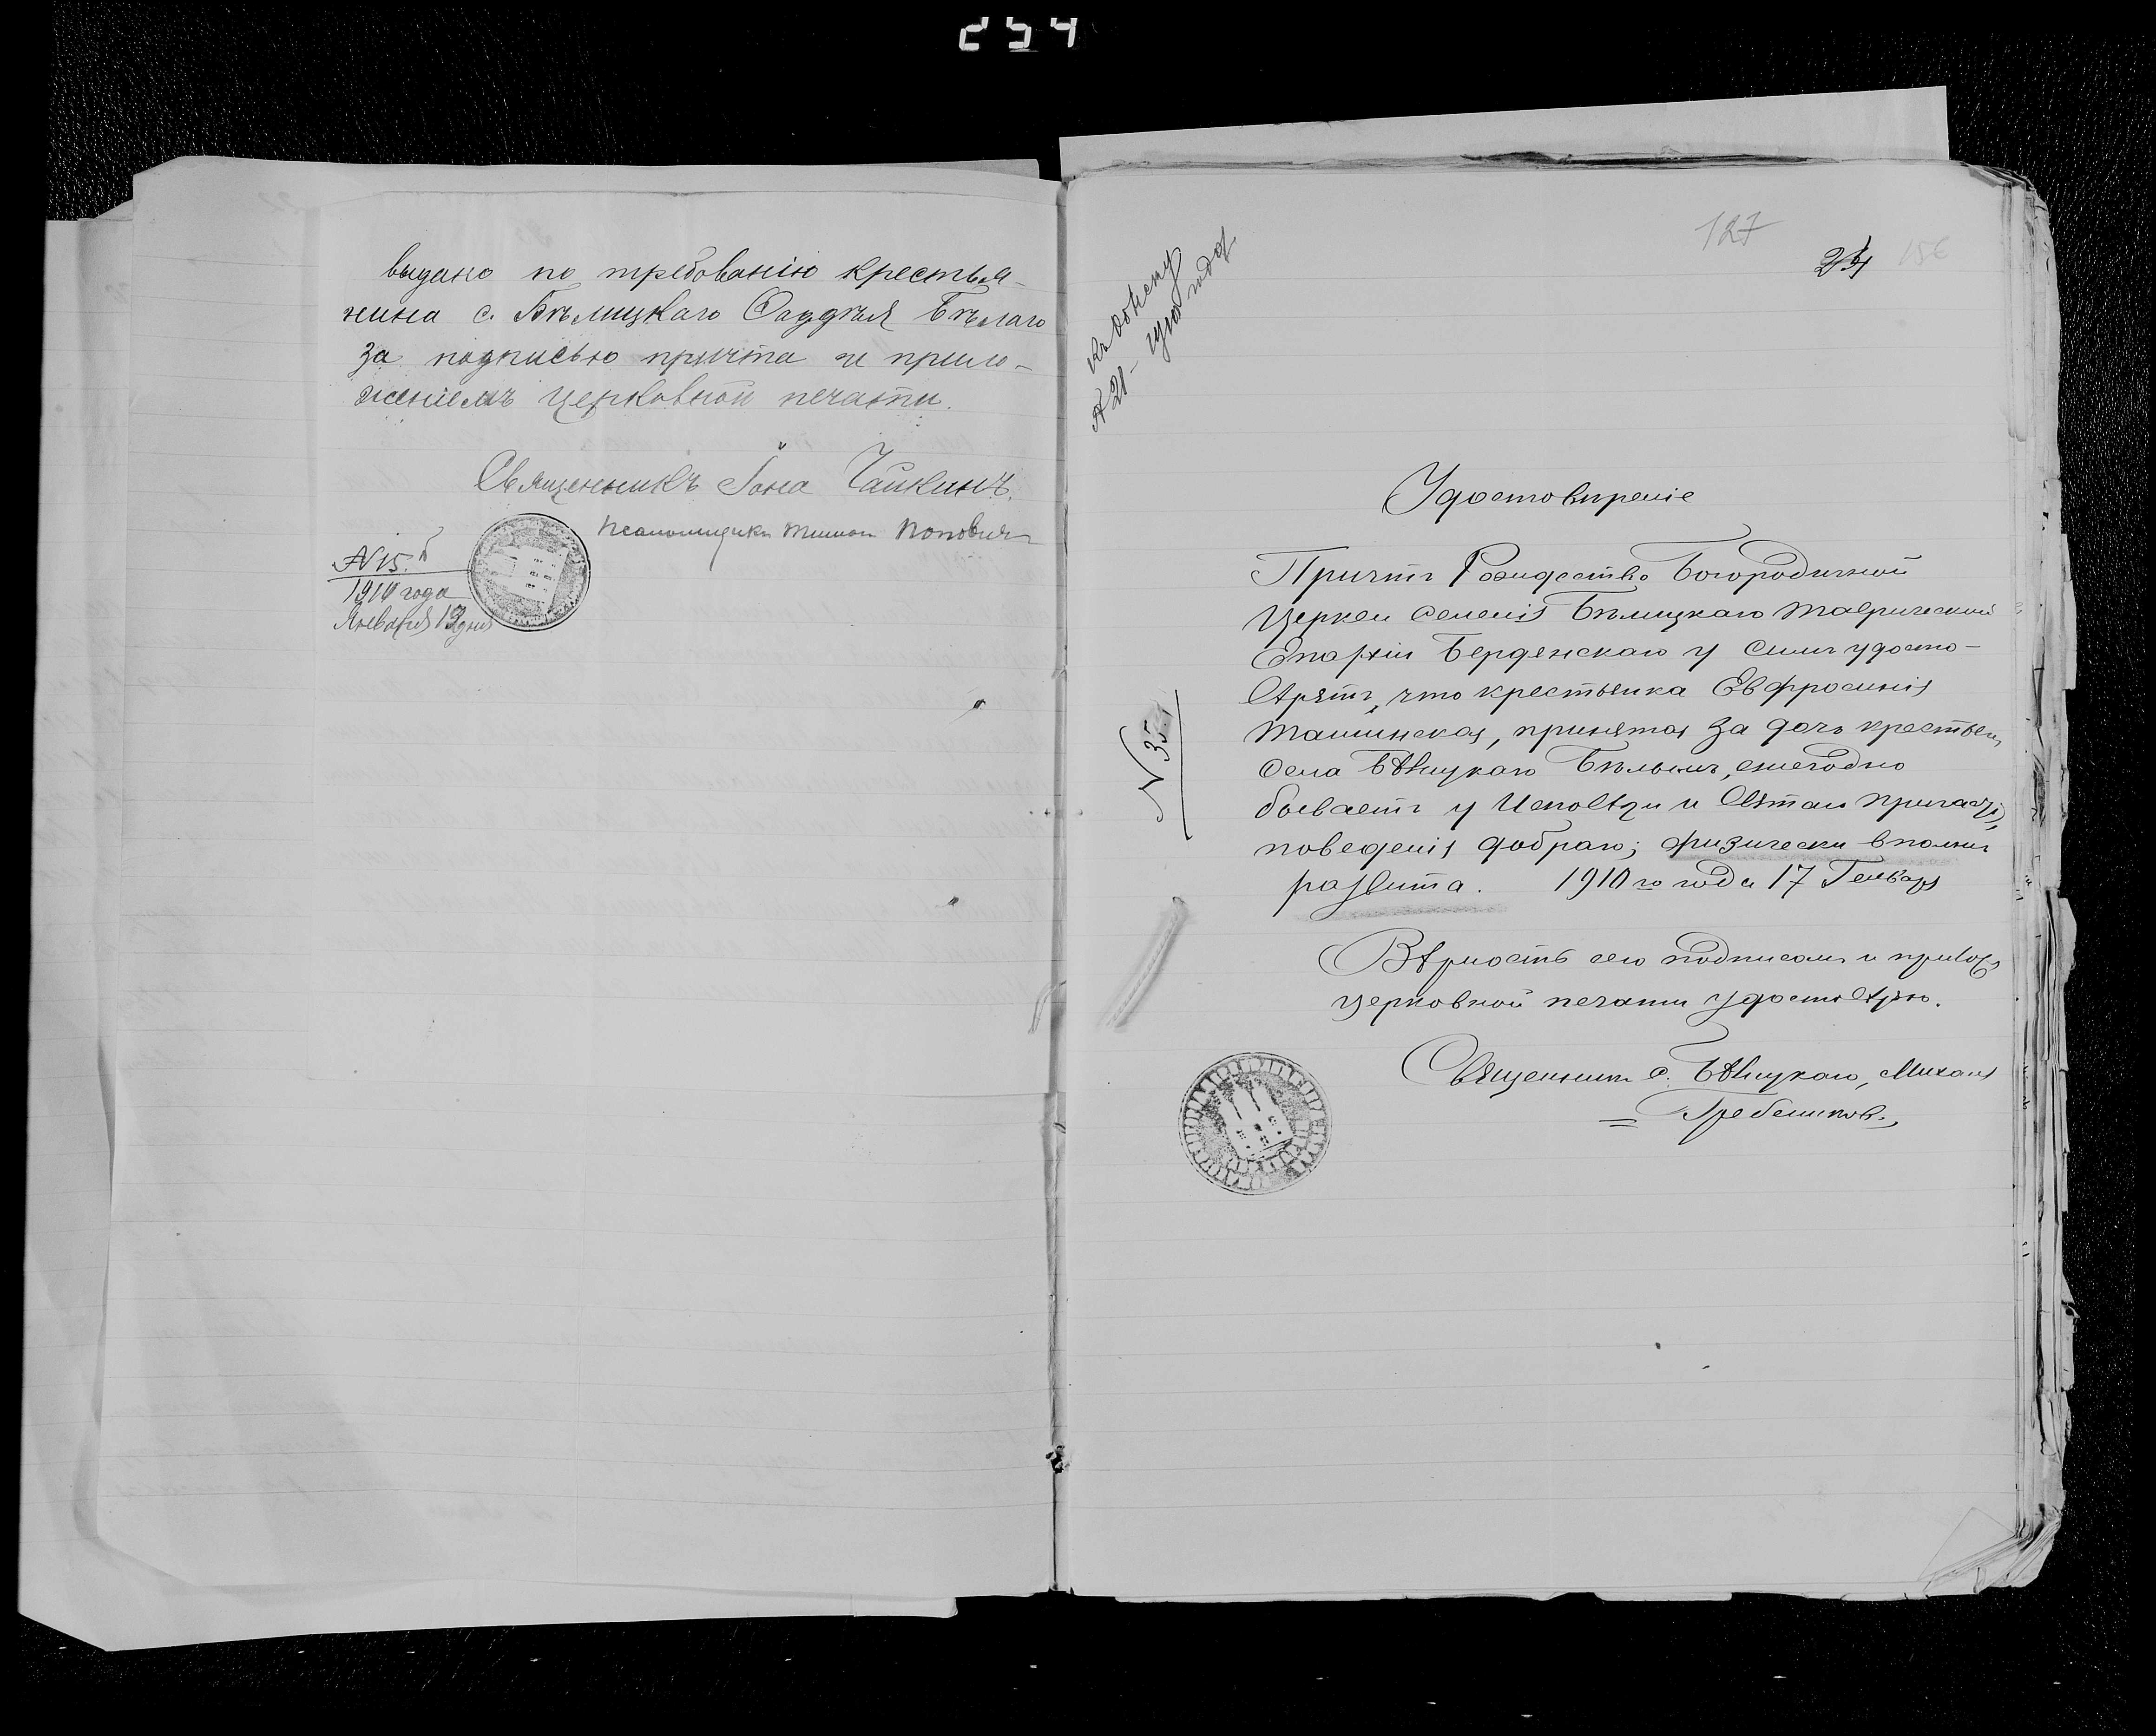 254
выдано по требованію крестья-
нина с. Бѣлицкаго Фаддѣя Бѣлаго
за подписью причта и прило-
женіемъ церковной печати.
Священникъ Іона Чайкинъ.
Псаломщикъ Попович
N 15.
1910 года
Января 13 дня
127
24
къ обыску
N 21
года
Удостовѣреніе
Причтъ Рождество Богородичной
Церкви селенія Бѣлицкаго Таврической
Епархіи Бердянскаго у симъ удосто-
вѣряетъ, что крестьянка Евфросинія
принятая за дочь крестьян
села Бѣлицкаго Бѣлымъ, ежегодно
бываетъ у Исповѣди и Святаго Причастія,
поведенія добраго; физически вполнѣ
развита. 1910 го года 17 Генваря
N 35
Вѣрность сего подписомъ и
церковной печати удостовѣряю.
Священникъ с. Бѣлицкаго, Михаил
Гребенников